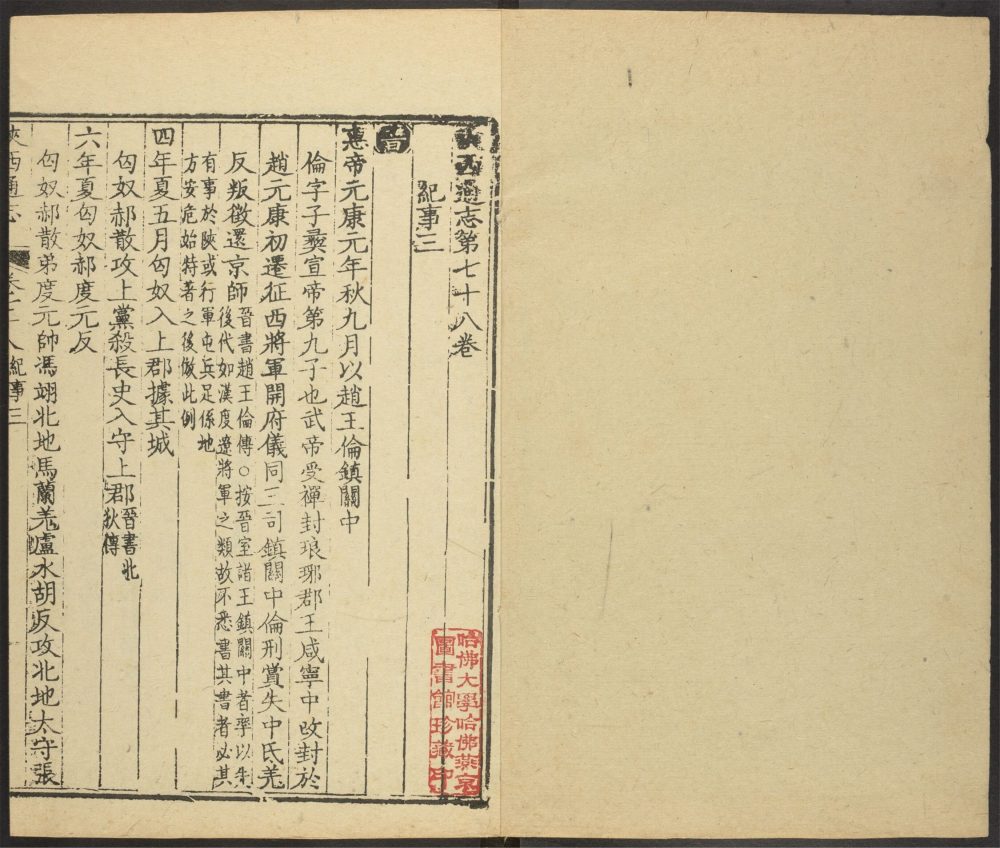 陝西通志第七十八卷
紀事三
晋
惠帝元康元年秋九月以趙王倫鎮關中
倫字子彞宣帝第九子也武帝受禪封琅琊郡王咸寧中改封於
趙元康初遷征西將軍開府儀同三司鎮關中倫刑賞失中氐羌
反叛徵還京師
晉書趙王倫傳○按晉室諸王鎮關中者率以朱
後代如漢度遼將軍之類故不悉書其書者必其
有事於陝或行軍屯兵足係地
方安危始特著之後倣此例
四年夏五月匈奴入上郡據其城
匈奴郝散攻上黨殺長史入守上郡
晉書北
狄傳
六年夏匈奴郝度元反
匈奴郝散弟度元帥馮翊北地馬蘭羌盧水胡反攻北地太守張
陝西通志
紀事三
哈佛大學哈佛燕京
圖書館珍藏印